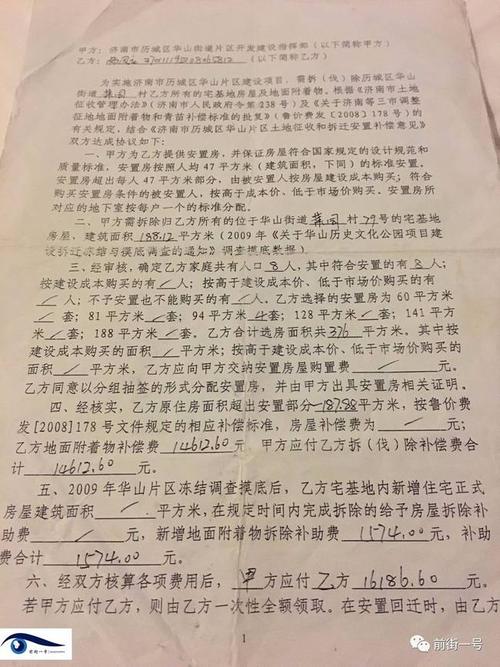 甲方：济南市历城区华山街道片区开发建设指挥部（以下简称甲方）
乙方：（以下简称乙方）
为实施济南市历城区华山片区建设项目，需拆（伐）除历城区华山
街道 村乙方所有的宅基地房屋及地面附着物。根据《济南市土地
征收管理办法》（济南市人民政府令第238号）及《关于济南等三市调整
征地地面附着物和青苗补偿标准的批复》（鲁价费发［2008］178号）的
有关规定，结合《济南市历城区华山片区土地征收和拆迁安置补偿意见》
双方达成协议如下：
一、甲方为乙方提供安置房，并保证房屋符合国家规定的设计规范和
质量标准，安置房按照人均47平方米（建筑面积，下同）的标准安置。
安置房超出每人47平方米部分，由被安置人按房屋建设成本购买；符合
购买安置房条件的被安置人，按高于成本价、低于市场价购买。安置房所
对应的地下室按每户一个的标准分配。
二、甲方需拆除归乙方所有的位于华山街道 村79号的宅基地
房屋，建筑面积188.12平方米（2009年《关于华山历史文化公园项目建
设拆迁冻结与摸底调查的通知》调查摸底数据）
三、经审核，确定乙方家庭共有人口8人，其中符合安置的有8人；
按建设成本购买的有／人；按高于建设成本、低于市场价购买的有
／人；不予安置也不能购买的有／人；乙方选择的安置房为60平方米
／套；81平方米／套；94平方米4套；128平方米／套；141平方
米／套；188平方米／套。乙方合计选房面积共376平方米。其中按
建设成本购买的面积／平方米；按高于建设成本价、低于市场价购买的
面积／平方米，乙方应向甲方交纳安置房屋购置费／元。
乙方同意以分组抽签的形式分配安置房，并由甲方出具安置房相关证明。
四、经核实，乙方原住房面积超出安置部分-187.88平方米，按鲁价费
发[2008]178号文件规定的相应补偿标准，房屋补偿费为／元；
乙方地面附着物补偿费14612.60元，甲方应付乙方拆（伐）除补偿费合
计14612.60元。
五、2009年华山片区冻结调查摸底后，乙方宅基地内新增住宅正式
房屋建筑面积／平方米，在规定时间内完成拆除的给予房屋拆除补
助费／元，新增地面附着物拆除补助费1574.00元，补助
费合计1574.00元。
六、经双方核算各项费用后，甲方应付乙方16186.60元。
若甲方应付乙方，则由乙方一次性全额领取。在安置回迁时，由乙方
1
前街一号
前街一号